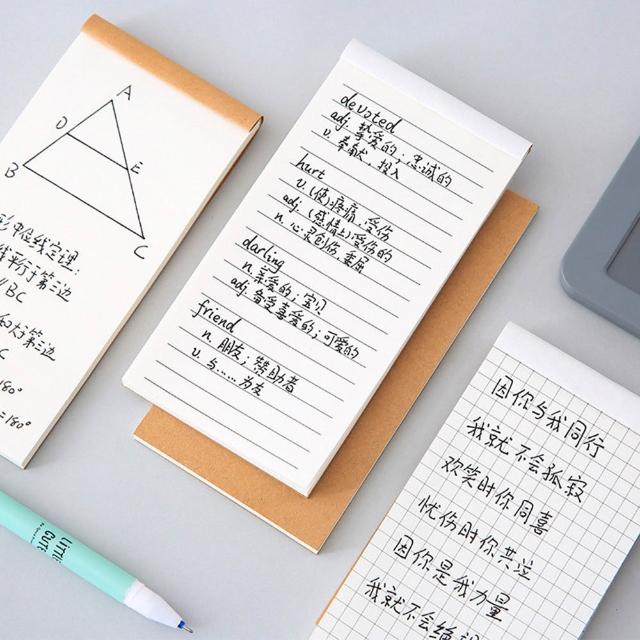 A
D
E
B
C
形中位线定理:
线平行于第三边
//BC
和等于第三边
C
180°
=180°
devoted
adj. 亲爱的；忠诚的
v. 奉献，投入
hurt
v. (使)疼痛，受伤
adj. (感情上)受伤的
n. 心灵创伤，委屈
darling
n. 亲爱的；宝贝
adj. 备受喜爱的；可爱的
friend
n. 朋友；赞助者
v. 与……为友
因你与我同行
我就不会孤寂
欢笑时你同喜
忧伤时你共泣
因你是我力量
我就不会绝
LITTLE
CUTE